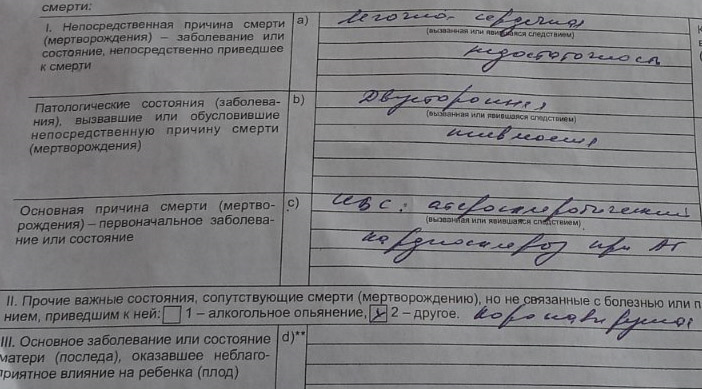 смерти:
I. Непосредственная причина смерти
(мертворождения) – заболевание или
состояние, непосредственно приведшее
к смерти
a)
Легочно-сердечная
(вызванная или явившаяся следствием)
недостаточность
Патологические состояния (заболева-
ния), вызвавшие или обусловившие
непосредственную причину смерти
(мертворождения)
b)
Двусторонняя
(вызванная или явившаяся следствием)
пневмония
Основная причина смерти (мертво-
рождения) – первоначальное заболева-
ние или состояние
c)
ИБС: атеросклеротический
(вызванная или явившаяся следствием)
кардиосклероз при АГ
II. Прочие важные состояния, сопутствующие смерти (мертворождению), но не связанные с болезнью или п
нием, приведшим к ней: 1 – алкогольное опьянение, 2 – другое. коронавирусная
III. Основное заболевание или состояние
матери (последа), оказавшее неблаго-
приятное влияние на ребенка (плод)
d)**